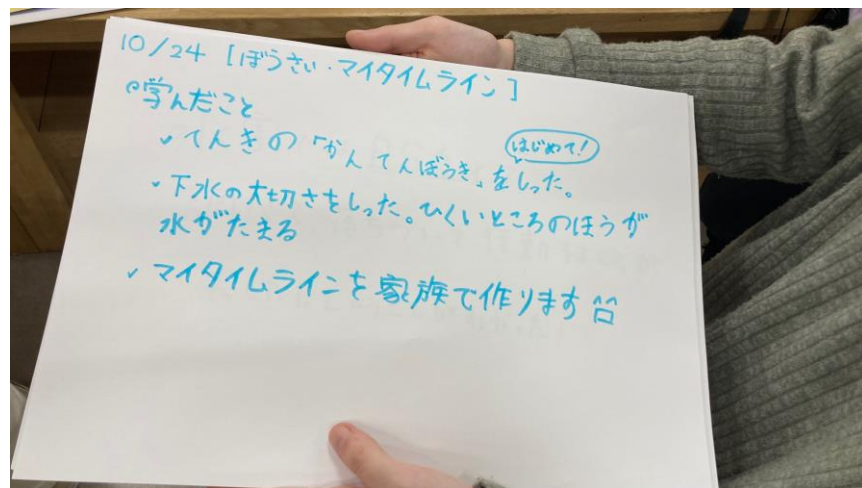 10/24 [ぼうさい・マイタイムライン]
学んだこと
✓ てんきの「かんてんぼうき」をしった。
はじめて!
・下水の大切さをしった。ひくいところのほうが
水がたまる
✓ マイタイムラインを家族で作ります